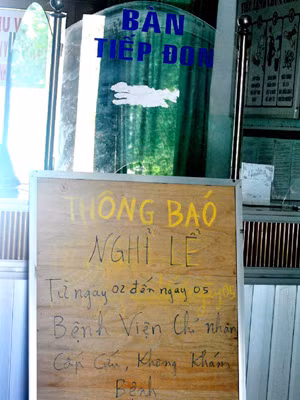 BÀN
TIẾP ĐÓN
THÔNG BÁO
NGHỈ LỄ
Từ ngày 02 đến ngày 05
Bệnh Viện Chỉ nhận
Cấp Cứu, Không Khám
Bệnh